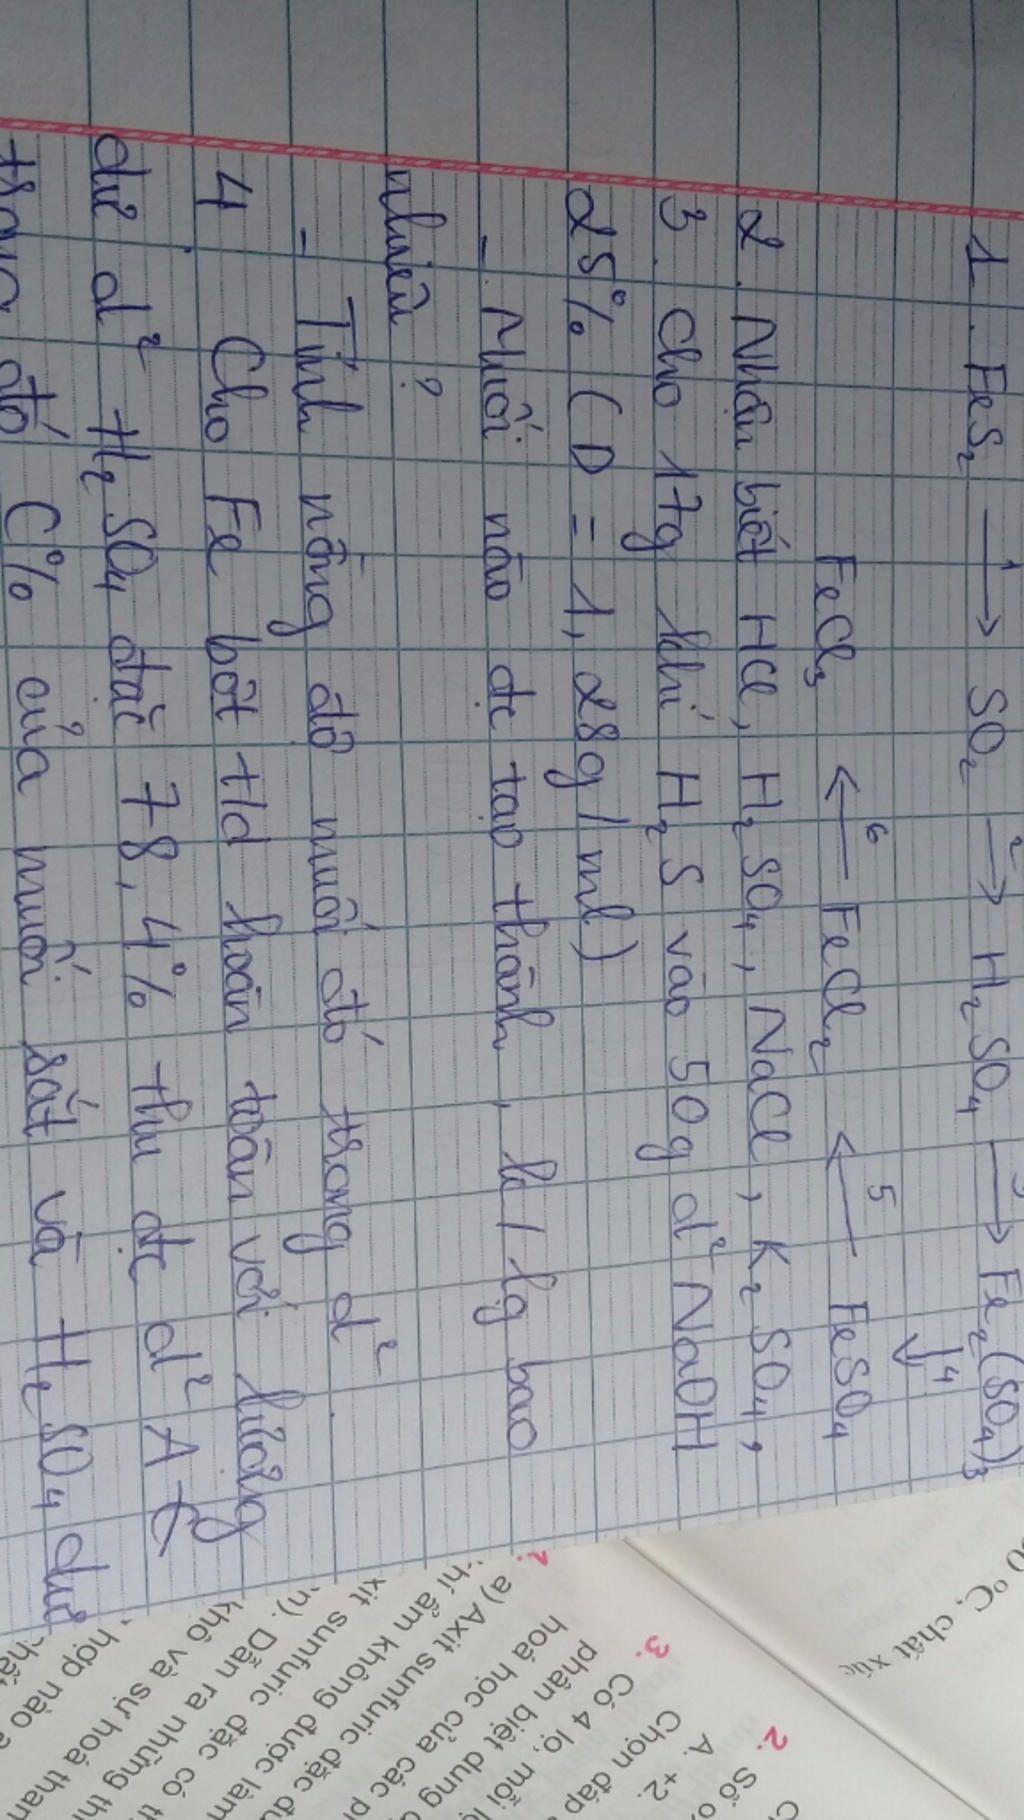 1. FeS₂ —1→ SO₂ —2→ H₂SO₄ —3→ Fe₂(SO₄)₃
↓4
FeCl₃ ←6— FeCl₂ ←5— FeSO₄
2. Nhận biết HCl, H₂SO₄, NaCl, K₂SO₄,
3. Cho 17g khí H₂S vào 50g d² NaOH
25% (D = 1,28g/ml)
- Muối nào đc tạo thành, kl/lg bao
nhiêu?
- Tính nồng độ muối đó trong d².
4. Cho Fe bột t/d hoàn toàn với lượng
dư d² H₂SO₄ đặc 78,4% thu đc d² A
trong đó C% của muối sắt và H₂SO₄ dư
0 °C, chất xúc
2. Số o
A. +2.
Chọn đáp
3. Có 4 lọ, mỗi l
phân biệt dung
hoá học của các p
a) Axit sunfuric đặc đư
khí ẩm không được làm
xit sunfuric đặc có t
n). Dẫn ra những th
khô và sự hoá than
hợp nào